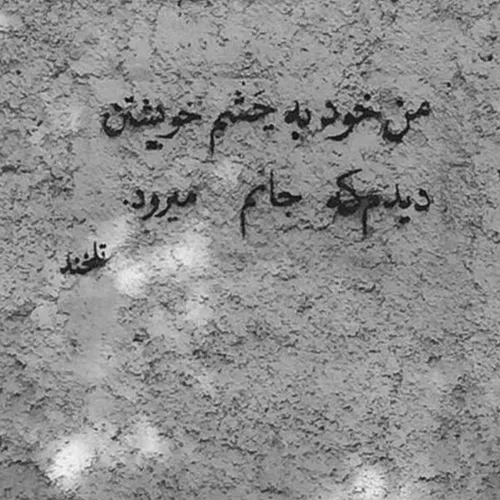 من خود به چشم خویشتن
دیدم که جانم میرود.
تلخند